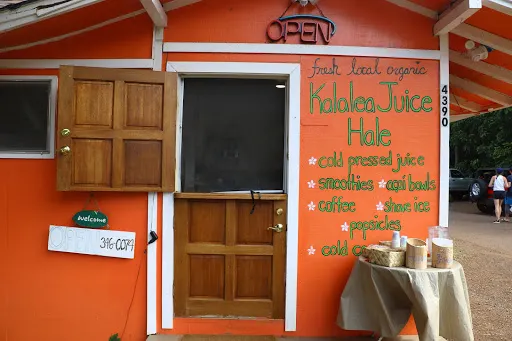 OPEN
fresh local organic
Kalalea Juice
Hale
cold pressed juice
smoothies açaí bowls
coffee shave ice
popsicles
cold
4390
welcome